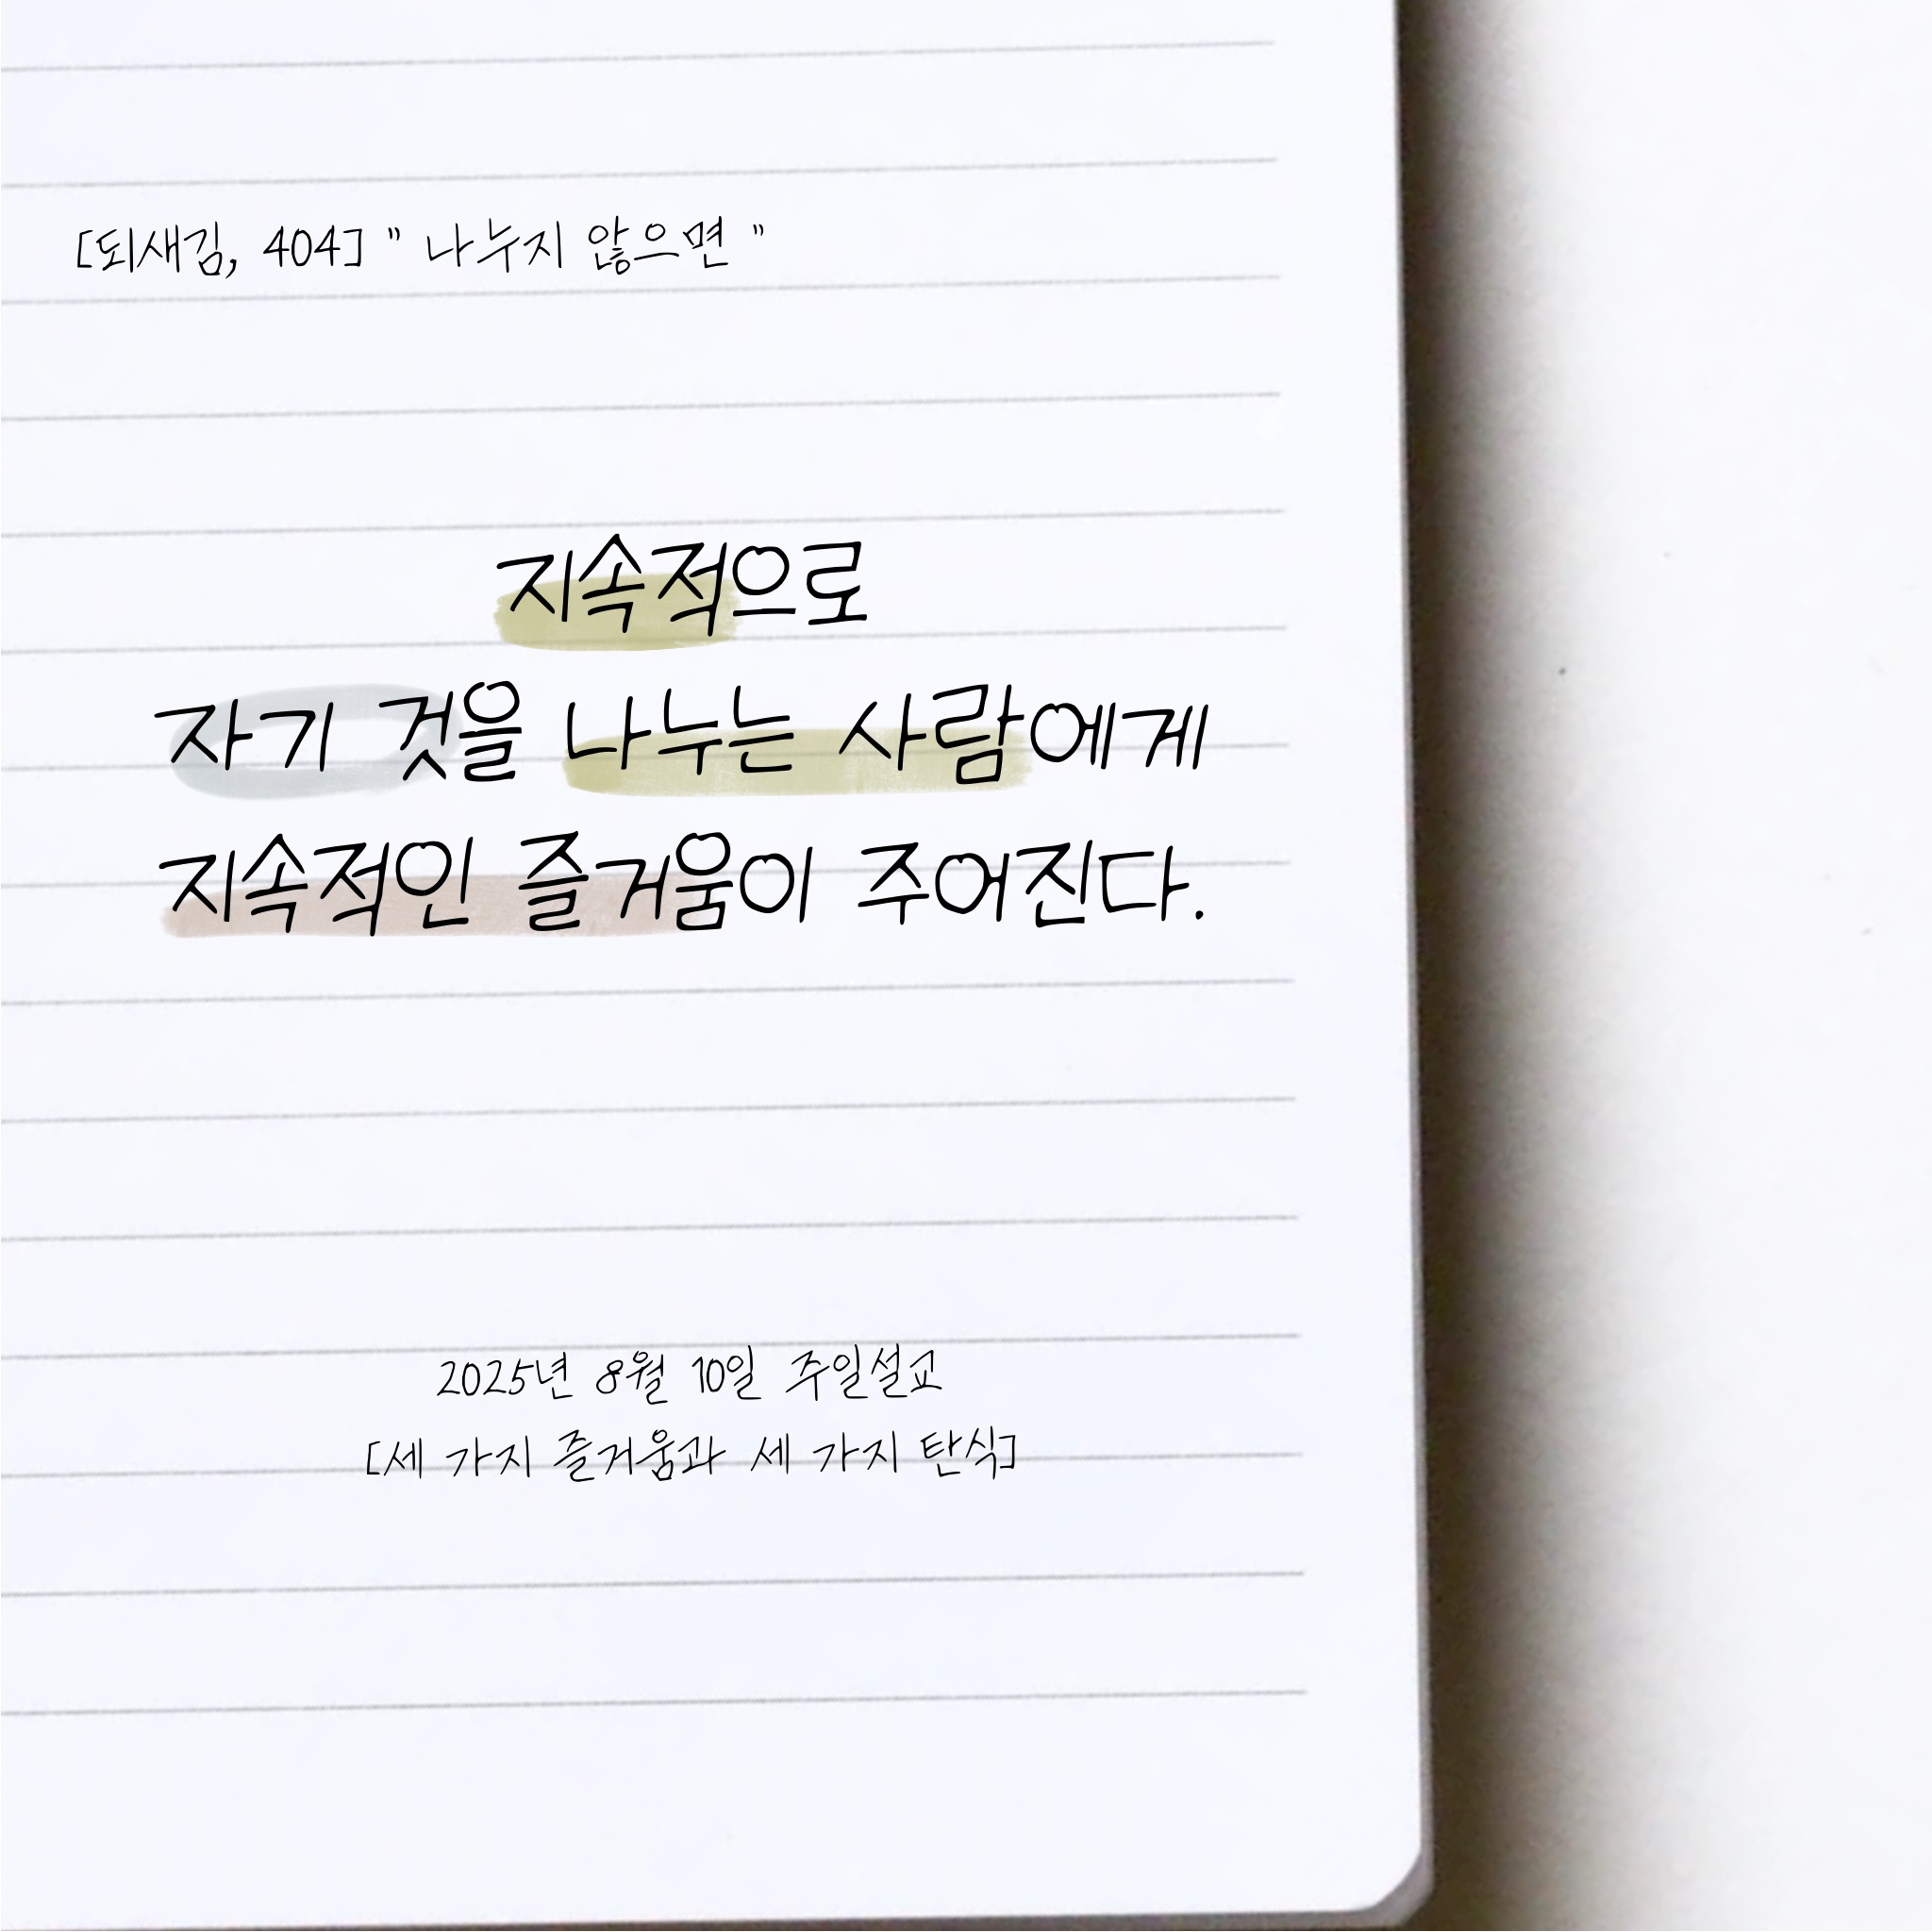 [되새김, 404] " 나누지 않으면 "
지속적으로
자기 것을 나누는 사람에게
지속적인 즐거움이 주어진다.
2025년 8월 10일 주일설교
[세 가지 즐거움과 세 가지 탄식]